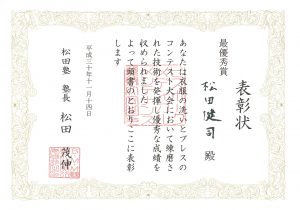 表彰状
最優秀賞
松田健司 殿
あなたは衣服の洗いとプレスの
コンテスト大会において練磨さ
れた技術を発揮し優秀な成績を
収められました
よって頭書のとおりここに表彰
します
平成三十年十一月十四日
松田塾 塾長 松田 茂伸